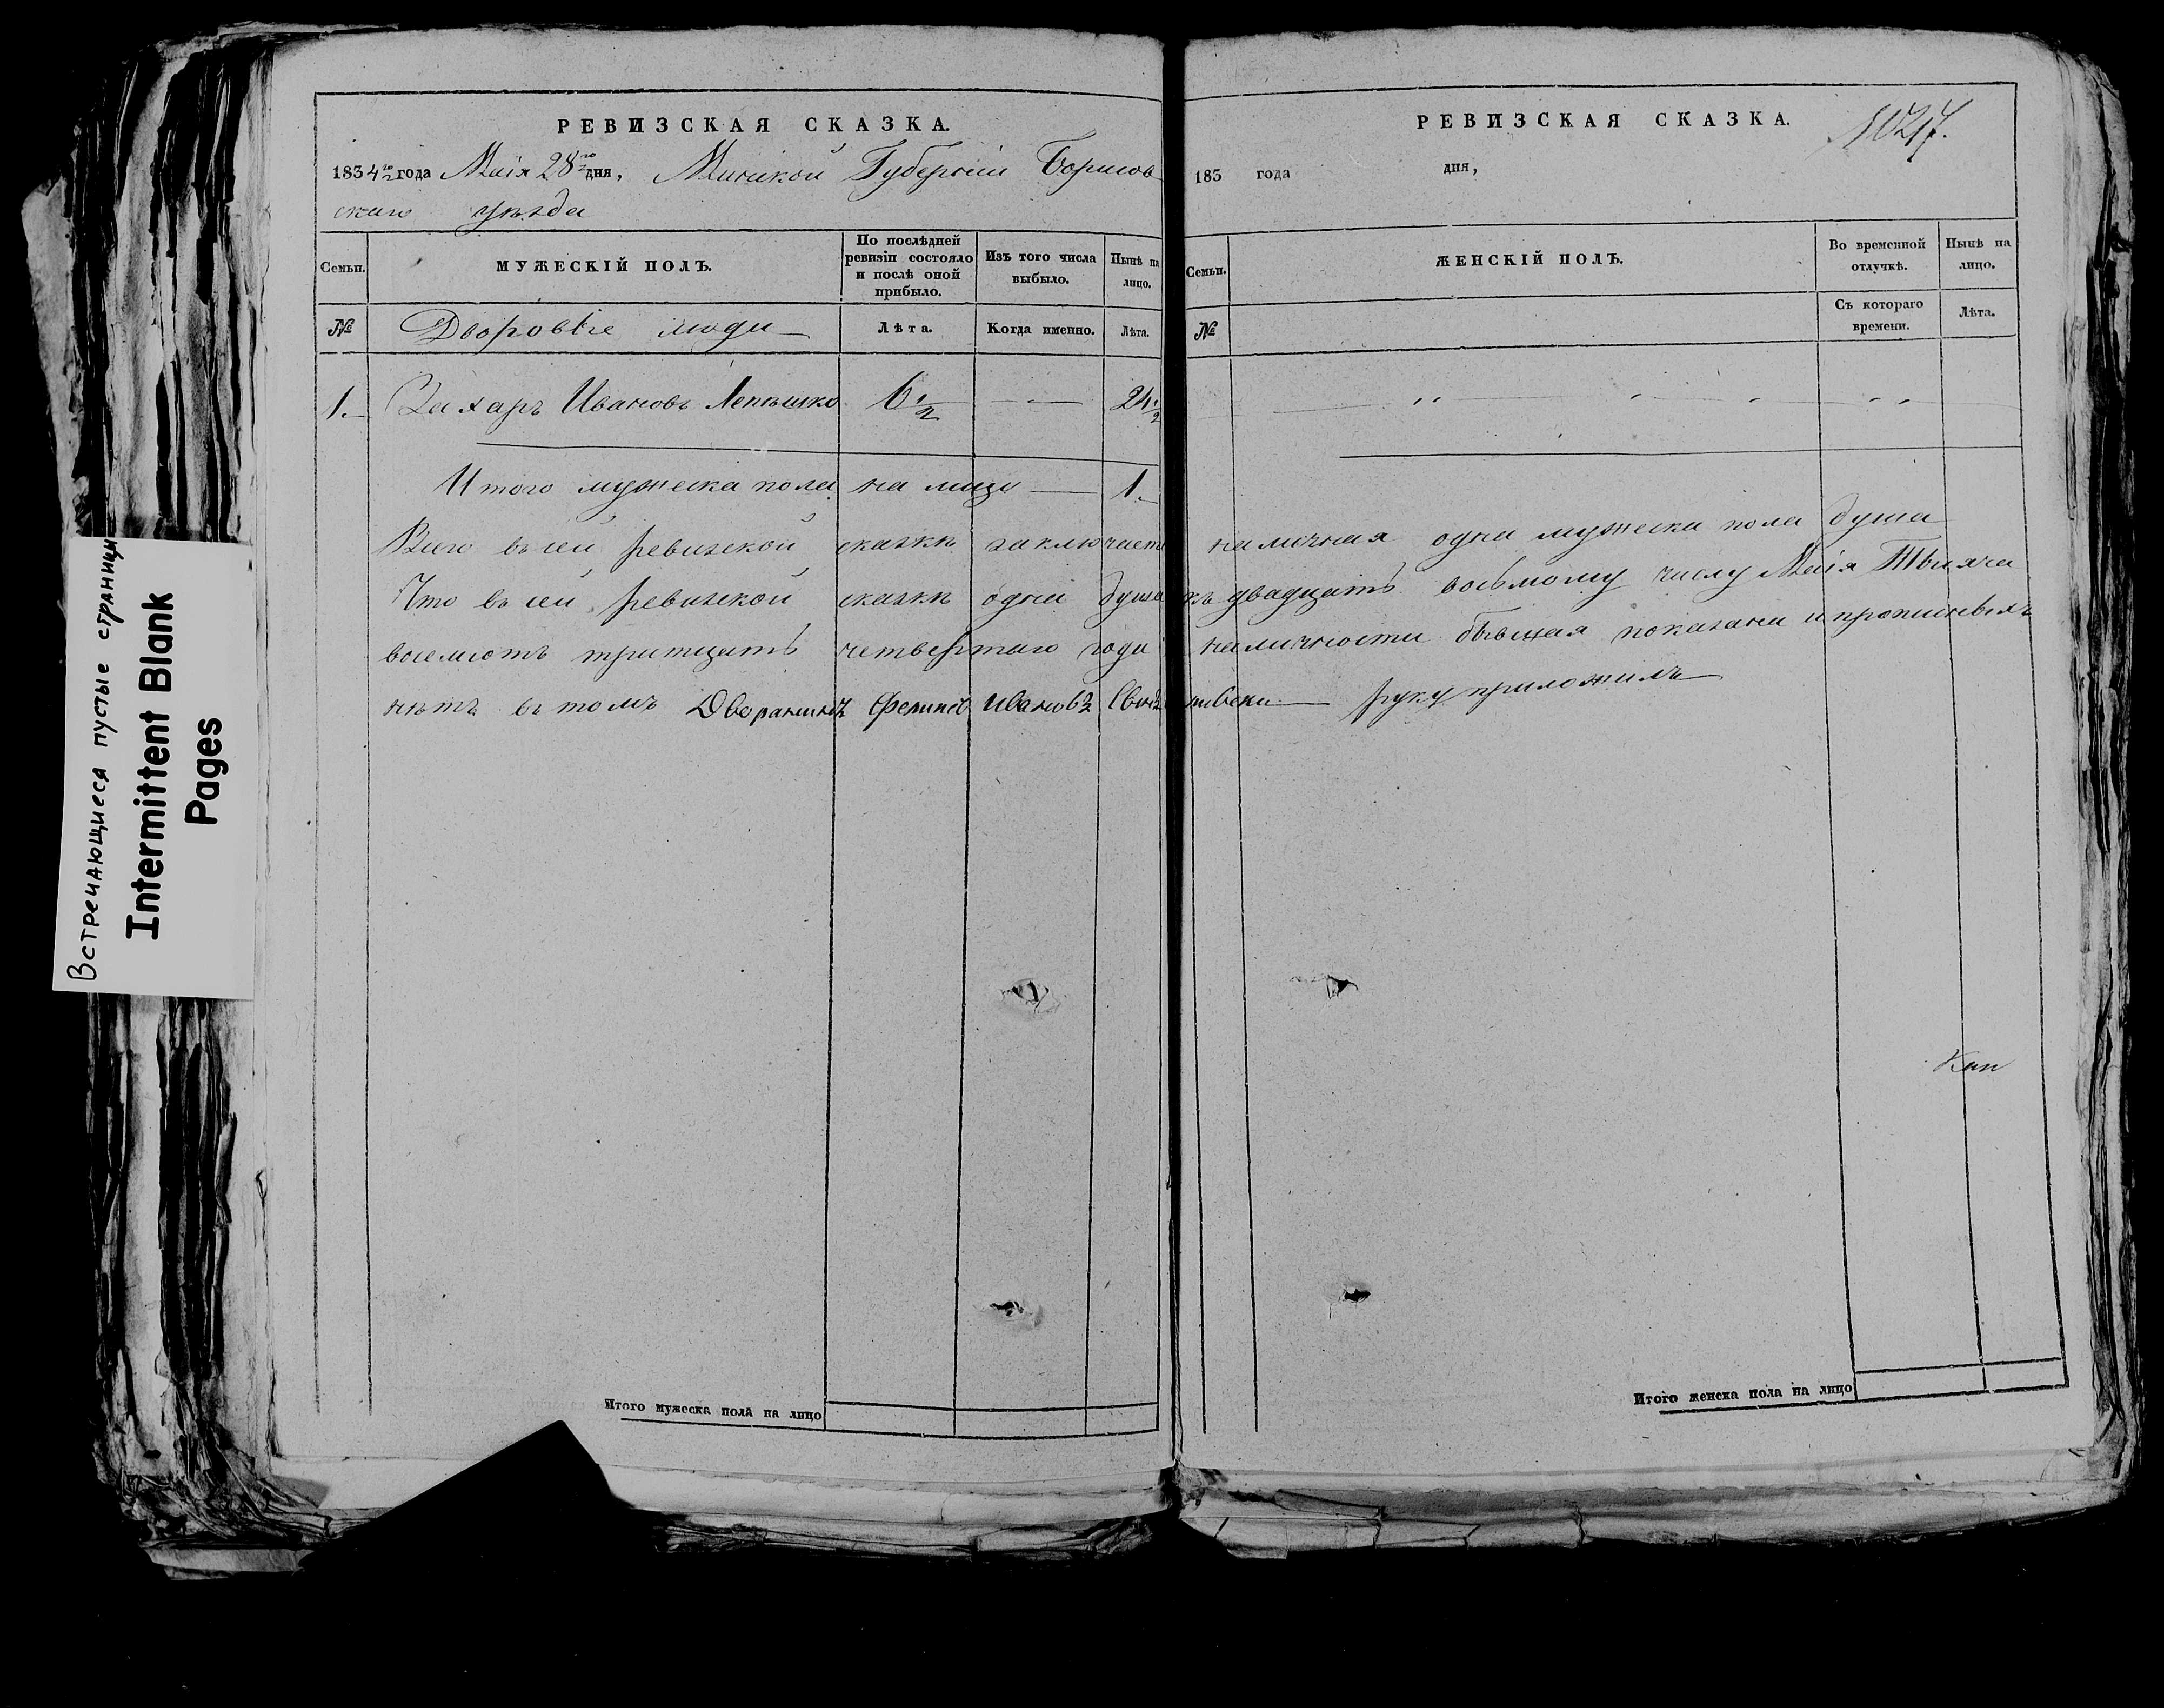 Встречающиеся пустые страницы
Intermittent Blank
Pages
РЕВИЗСКАЯ СКАЗКА.
1834го года Маія 28го дня, Минской Губерніи Борисов
скаго уѣзда
Семьи.
МУЖЕСКІЙ ПОЛЪ.
По послѣдней ревизіи состояло и послѣ оной прибыло.
Изъ того числа выбыло.
Нынѣ на лицо.
№
Дворовые люди
Лѣта.
Когда именно.
Лѣта.
1. Захаръ Ивановъ Лепѣшко 6 1/2 — 24 1/2
Итого мужеска пола на лицо — 1.
Всего въ сей ревизской сказкѣ заключаетъ наличная одна мужеска пола душа
Что въ сей ревизской сказкѣ одна душа къ двадцать восьмому числу Маія Тысяча
восемсотъ тритцать четвертаго года наличности бывшая показана и прописныхъ
нѣтъ въ томъ Дворянинъ Феликсъ Ивановъ руку приложилъ
Итого мужеска пола на лицо
РЕВИЗСКАЯ СКАЗКА.
1027.
183 года дня,
Семьи.
ЖЕНСКІЙ ПОЛЪ.
Во временной отлучкѣ.
Нынѣ на лицо.
№
Съ котораго времени.
Лѣта.
Итого женска пола на лицо